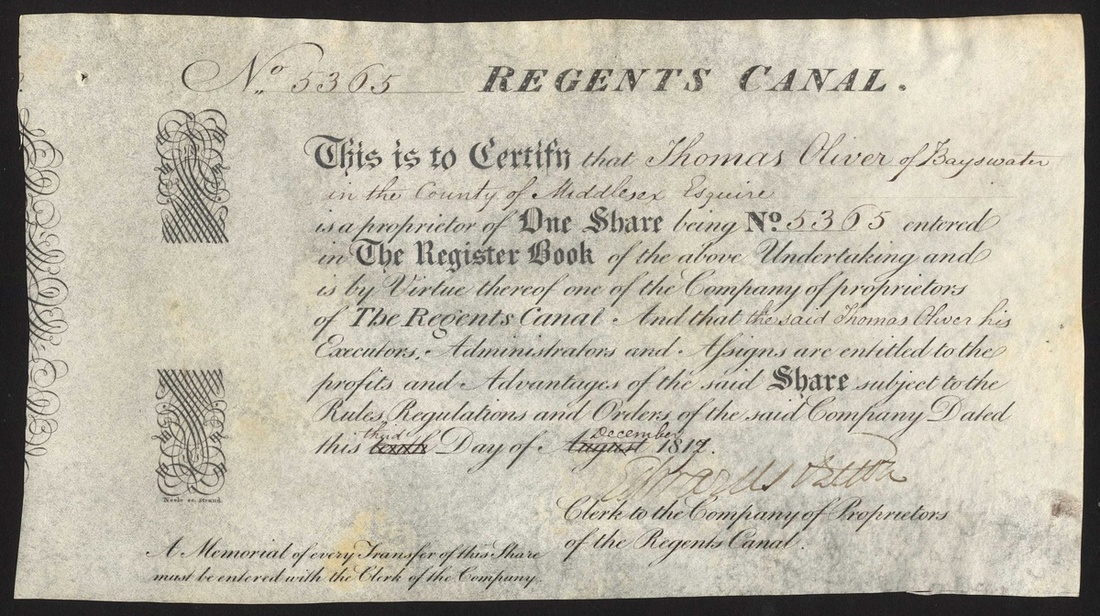 No 5365 REGENTS CANAL.
This is to Certify that Thomas Oliver of Bayswater
in the County of Middlesex Esquire
is a proprietor of One Share being No. 5365 entered
in The Register Book of the above Undertaking and
is by Virtue thereof one of the Company of proprietors
of The Regents Canal And that the said Thomas Oliver his
Executors, Administrators and Assigns are entitled to the
profits and Advantages of the said Share subject to the
Rules, Regulations and Orders, of the said Company Dated
this tenth third Day of August December 1817.
Clerk to the Company of Proprietors
of the Regents Canal.
Neele sc. Strand.
A Memorial of every Transfer of this Share
must be entered with the Clerk of the Company.